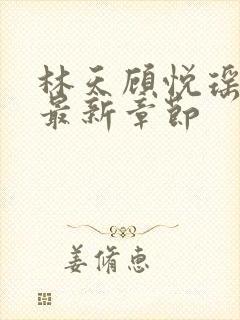 林天顾悦瑶
最新章节
姜脩惠